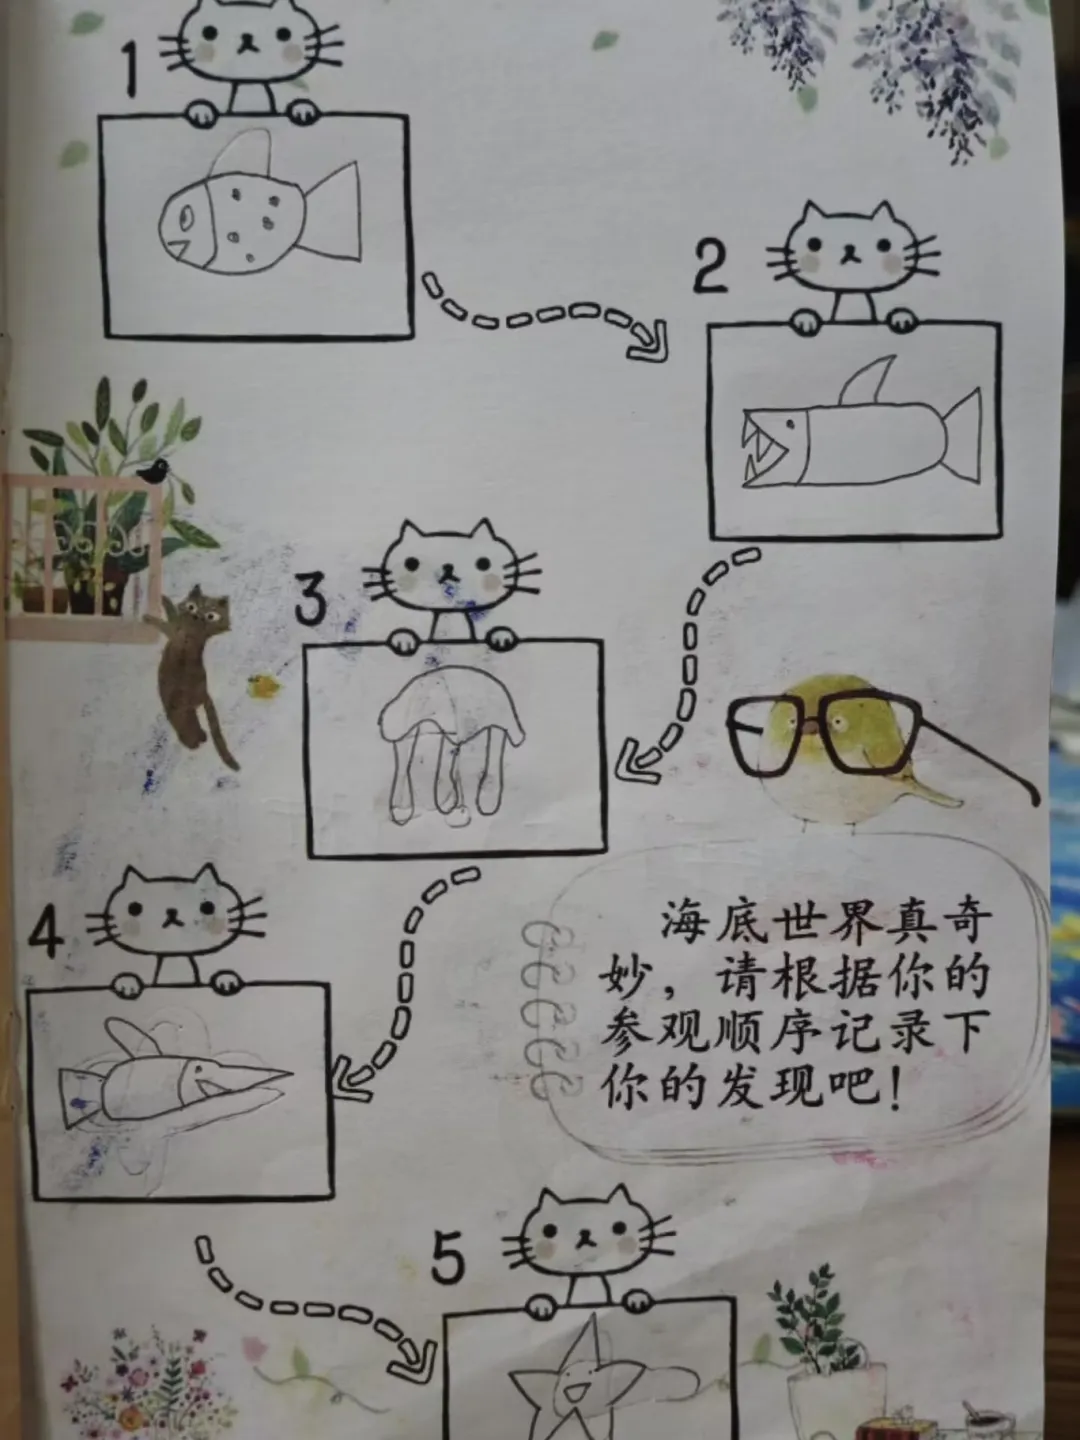 1
2
3
4
海底世界真奇
妙，请根据你的
参观顺序记录下
你的发现吧！
5